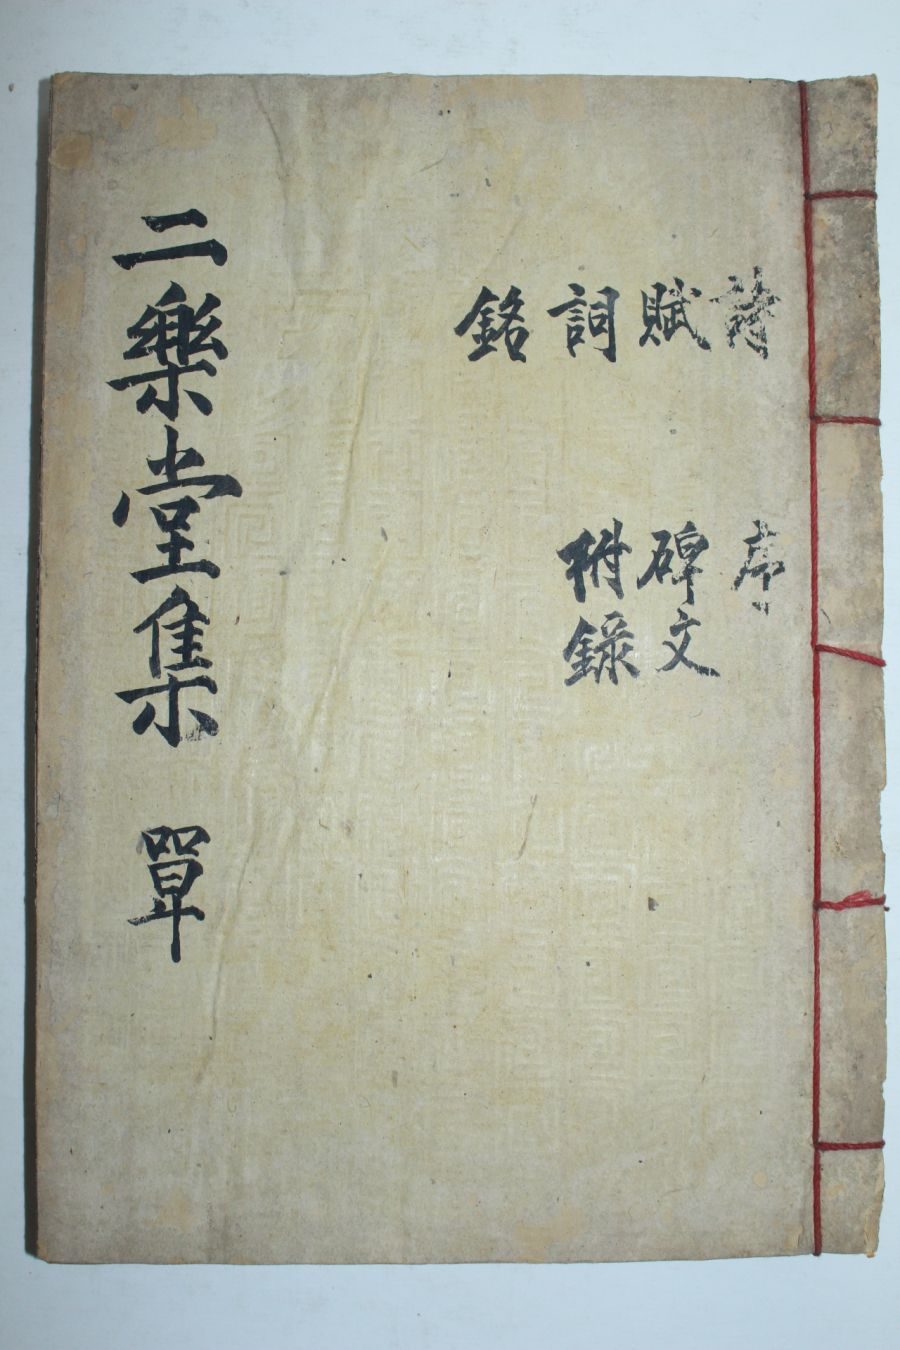 詩
賦
詞
銘
序
碑文
附錄
二樂堂集 單